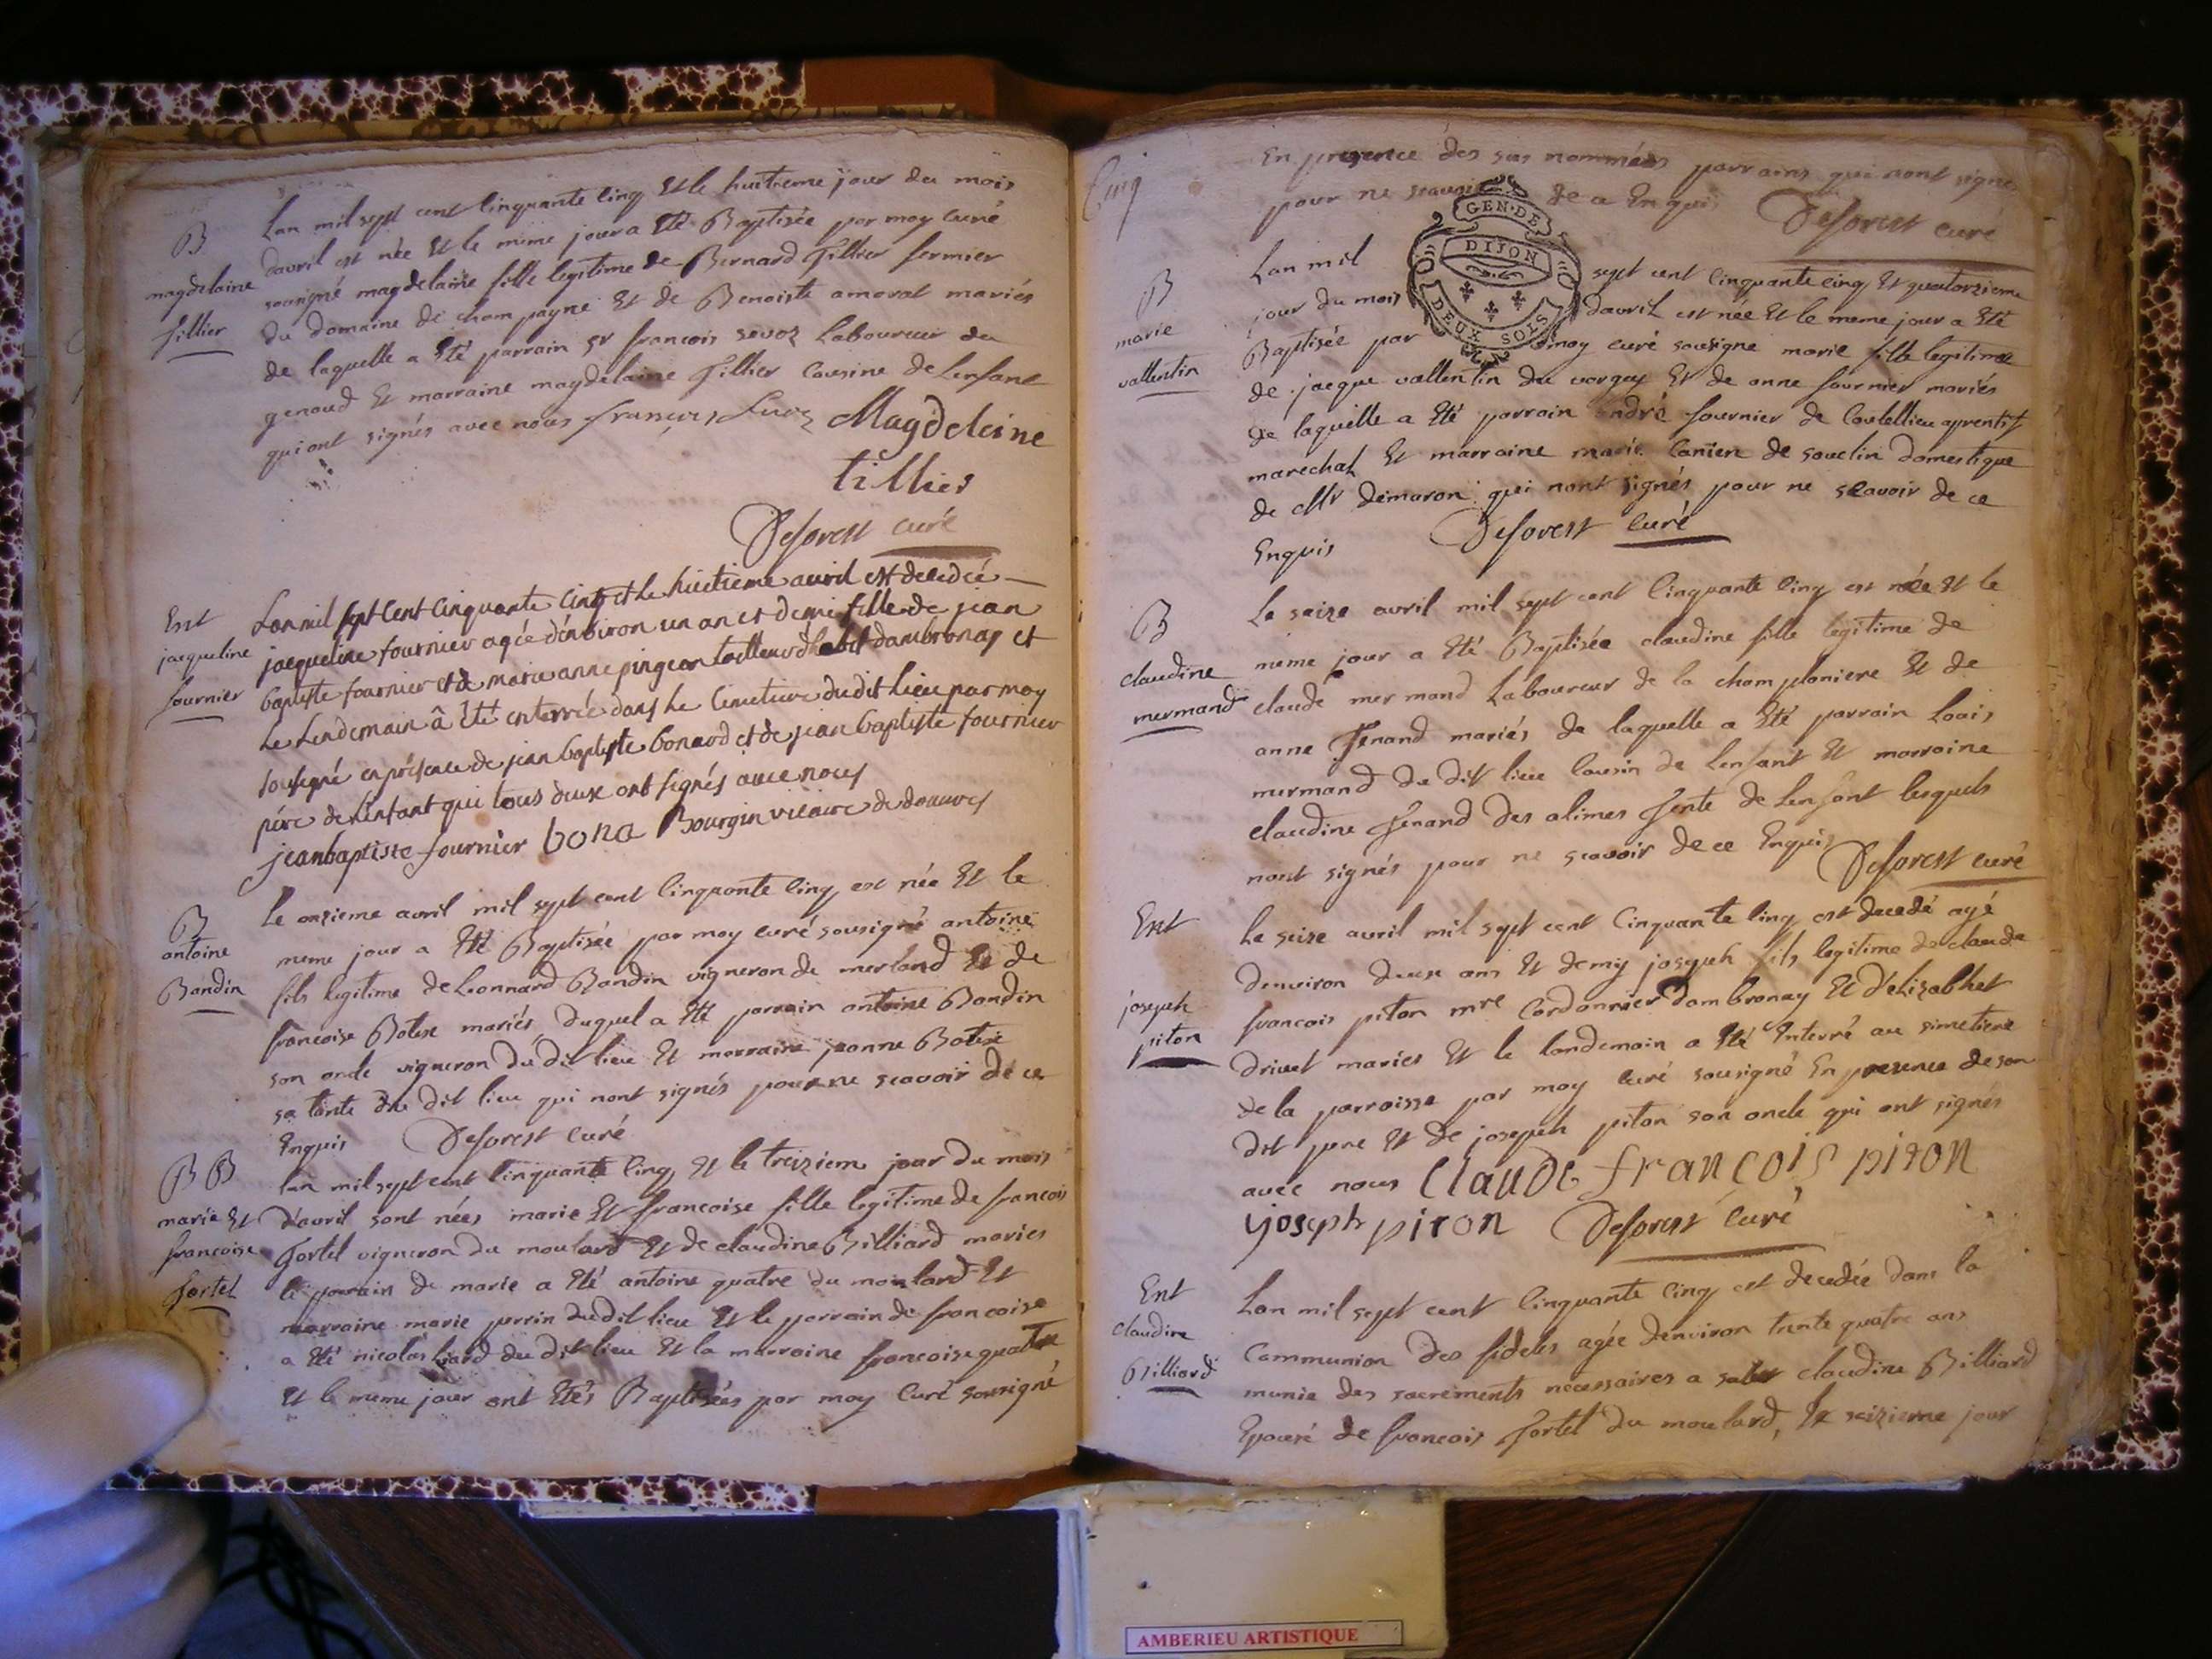 B
magdelaine
fillier
Lan mil sept cent cinquante cinq Et le huitieme jour du mois
davril est née Et le meme jour a Eté Baptisée par moy curé
sousigné magdelaine fille legitime de Bernard Tillier fermier
du domaine de champagne Et de Benoiste amorat mariés
de laquelle a Eté parrain Sr francois sevoz Laboureur du
genoud Et marraine magdelaine Tillier Cousine de Lenfant
qui ont signés avec nous françois Magdeleine
tillier
Deforest curé
Ent
jacqueline
fournier
Lan mil sept Cent Cinquante Cinq et le huitieme auril est decedée
jacqueline fournier agée d'environ un an et demi fille de jean
baptiste fournier et de marie anne pingeon tailleur d'habit dambronay et
Le Lendemain â êté enterrée dans le Cimetiere dudit Lieu par moy
sousigné en présence de jean baptiste bonard et de jean baptiste fournier
pére de L'enfant qui tous deux ont signés avec nous
jeanbaptiste fournier bona Bourgin vicaire de douvres
B
antoine
Bandin
Le onzieme avril mil sept cent Cinquante Cinq est née Et le
meme jour a Eté Baptisée par moy curé sousigné antoine
fils legitime de Leonnard Bandin vigneron de merland Et de
francoise Botexe mariés duquel a Eté parrain antoine Bandin
son oncle vigneron du dit lieu Et marraine jeanne Botexe
sa tante du dit lieu qui nont signés pour ne scavoir de ce
Enquis Deforest Curé
B B
marie Et
francoise
fortel
Lan mil sept cent Cinquante Cinq Et le treizieme jour du mois
d'avril sont nées marie Et francoise fille legitime de francois
fortel vigneron du moulard Et de claudine Billiard mariés
le parrain de marie a Eté antoine quatre du moulard Et
marraine marie perrin du dit lieu Et le parrain de francoise
a Eté nicolas du dit lieu Et la marraine francoise quatre
Et le meme jour ont Etés Baptisées par moy Curé sousigné
Cinq
En presence des sus nommées parrains qui nont signé
pour ne scavoir de ce Enquis Deforest curé
GEN·DE
DIJON
DEUX SOLS
B
marie
vallentin
Lan mil sept cent Cinquante cinq Et quatorzieme
jour du mois davril est née Et le meme jour a Eté
Baptisée par moy curé sousigne marie fille legitime
de jacque vallentin du vorgey Et de anne fournier mariés
de laquelle a Eté parrain andré fournier de Coutellieu aprentif
marechal Et marraine marie Canien de souclin domestique
de Mr demaron qui nont signés pour ne scavoir de ce
Enquis Deforest Curé
B
claudine
mermand
Le seize avril mil sept cent Cinquante Cinq est née Et le
meme jour a Eté Baptisée claudine fille legitime de
claude mermand Laboureur de la champlaniere Et de
anne Jenand mariés de laquelle a Eté parrain Louis
mermand du dit lieu Cousin de Lenfant Et marraine
claudine Jenand des alimes Tente de Lenfant lesquels
nont signés pour ne scavoir de ce Enquis Deforest curé
Ent
joseph
piton
Le seize avril mil sept cent Cinquante Cinq est decedé agé
denviron deux ans Et demy joseph fils legitime de claude
francois piton mre Cordonnier dambronay Et d'elizabhet
drivet mariés Et le landemain a Eté Enterré au simetiere
de la parroisse par moy curé sousigné En presence de son
dit pere Et de joseph piton son oncle qui ont signés
avec nous Claude francois piton
joseph piton Deforest Curé
Ent
claudine
Billiard
Lan mil sept cent Cinquante Cinq est decedée dans la
Communion des fideles agée denviron trente quatre ans
munie des sacrements necessaires a salut claudine Billiard
Epouse de francois fortel du moulard, le seizieme jour
AMBERIEU ARTISTIQUE